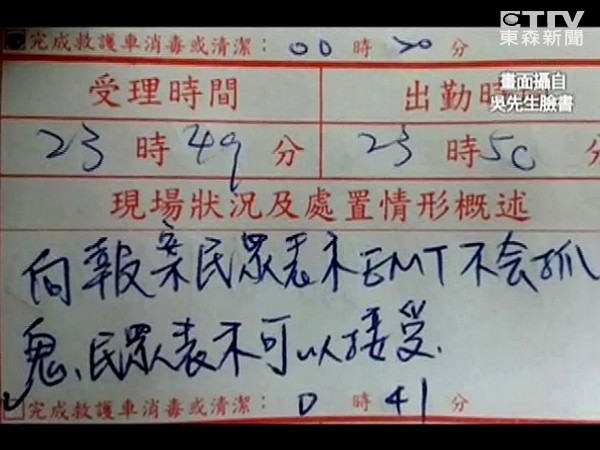 CTTV
東森新聞
完成救護車消毒或清潔： 00 時 20 分
畫面攝自
吳先生臉書
受理時間 出勤時
23 時 49 分 23 時 50 分
現場狀況及處置情形概述
向報案民眾表示EMT不会抓
鬼、民眾表示可以接受.
完成救護車消毒或清潔： 0 時 41 分